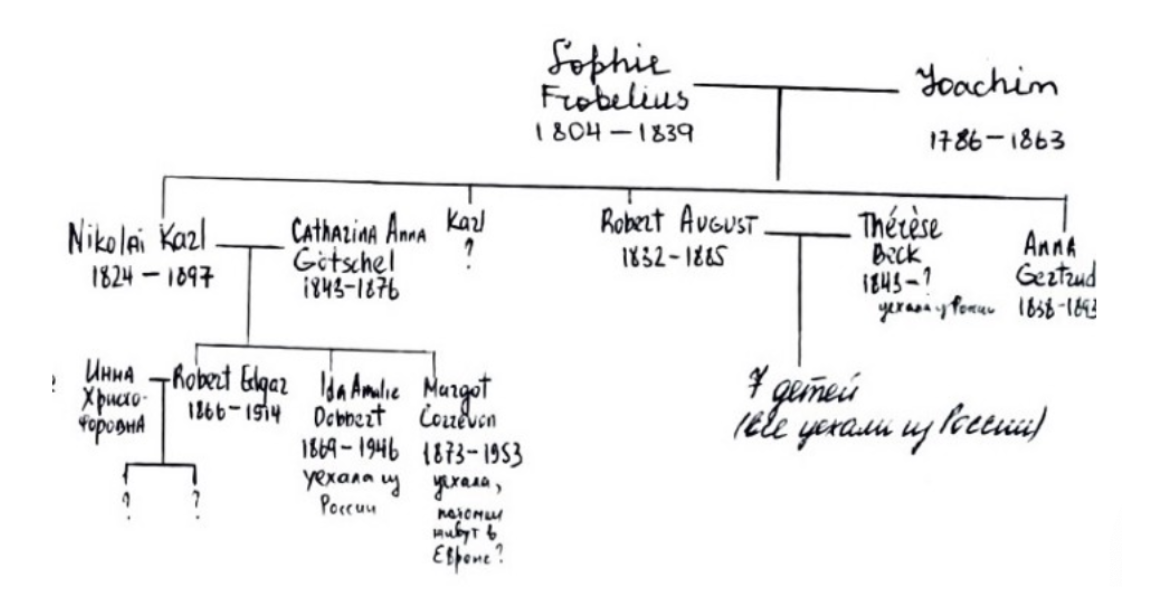 Sophie
Frobelius
1804 – 1839
Joachim
1786 – 1863
Nikolai Karl
1824 – 1897
Catharina Anna
Götschel
1843–1876
Karl
?
Robert August
1832–1885
Thérèse
Beck
1843–?
уехала из России
Anna
Gertrud
1838–189
Инна
Христо-
форовна
Robert Edgar
1866–1914
Ida Amalie
Dobbert
1869–1946
уехала из
России
Margot
Correvon
1873–1953
уехала,
потомки
живут в
Европе?
7 детей
(все уехали из России)
?
?